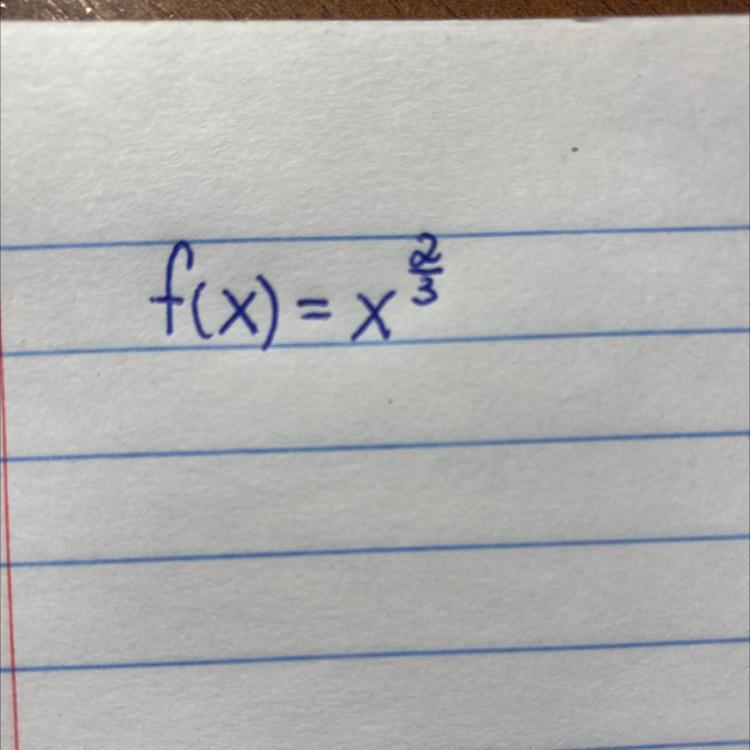 f(x) = x^{\frac{2}{3}}